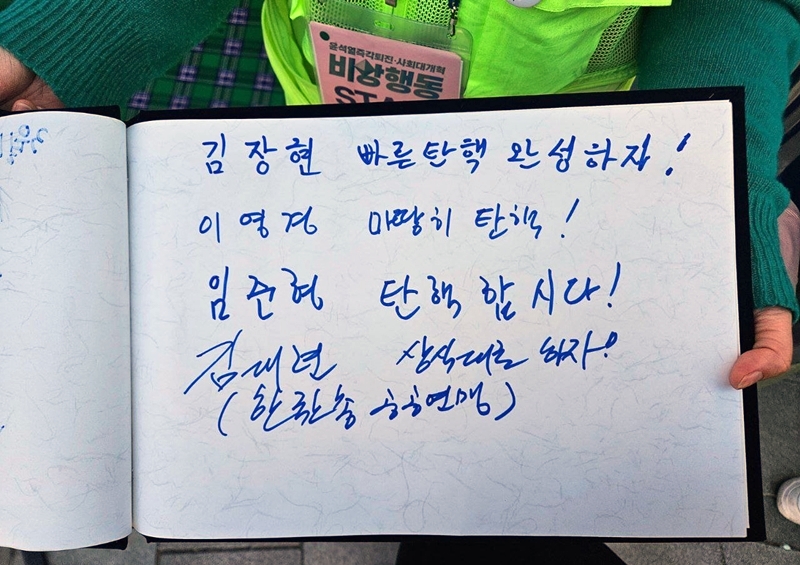 윤석열즉각퇴진·사회대개혁
비상행동
STA
김장현 빠른탄핵 완성하자!
이영경 마땅히 탄핵!
임준형 탄핵합시다!
김대련 상식대로 하자!
(한국노총 공공연맹)